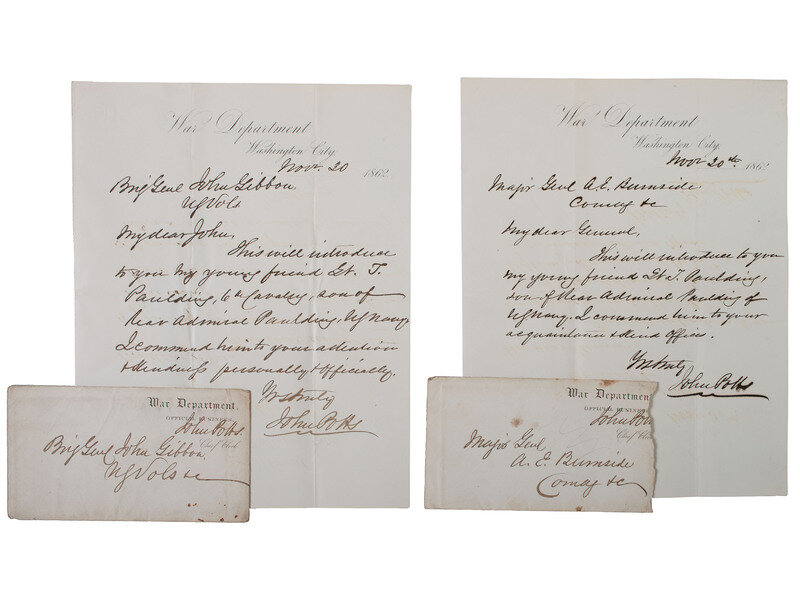 War Department
Washington City,
Nov. 20 1862
Brig Genl John Gibbon
US Vols
My dear John,
This will introduce
to you my young friend Lt. T.
Paulding, 6th Cavalry, son of
Rear Admiral Paulding, US Navy
I commend him to your attention
& kindness personally & officially.
Yrs truly
John Potts
War Department,
Official Business
John Potts.
Chief Clerk
Brig Genl John Gibbon,
US Vols &c
War Department
Washington City,
Nov 20th 1862
Major Genl A.E. Burnside
Comdg &c
My dear General,
This will introduce to you
my young friend Lt T. Paulding,
son of Rear Admiral Paulding of
US Navy. I commend him to your
acquaintance & kind offices.
Yrs truly
John Potts
War Department
Official Busine
John Pot
Chief Cler
Major Genl
A. E. Burnside
Comdg &c